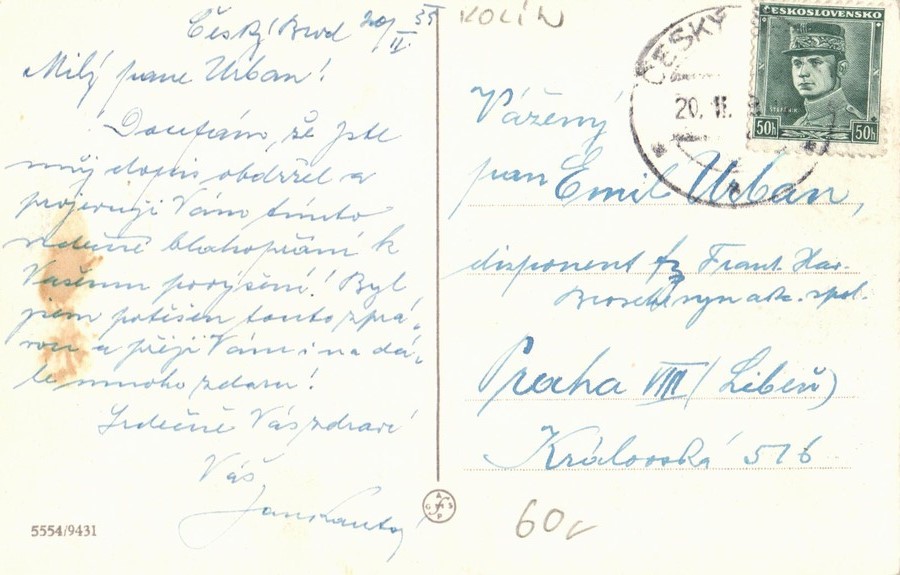 Český Brod 20/II. 35
Milý pane Urban!
Doufám, že jste
můj dopis obdržel a
projevuji Vám tímto
srdečné blahopřání k
Vašemu povýšení! Byl
jsem potěšen touto zprá-
vou a přeji Vám i na dá-
le mnoho zdaru!
Srdečně Vás zdraví
Váš
5554/9431
KOLÍN
ČESKÝ
20. II.
ČESKOSLOVENSKO
ŠTEFÁNIK
50h 50h
Vážený
pan Emil Urban,
disponent fy Frant. Har-
syn a spol.
Praha VIII (Libeň)
Královská 516
60,-